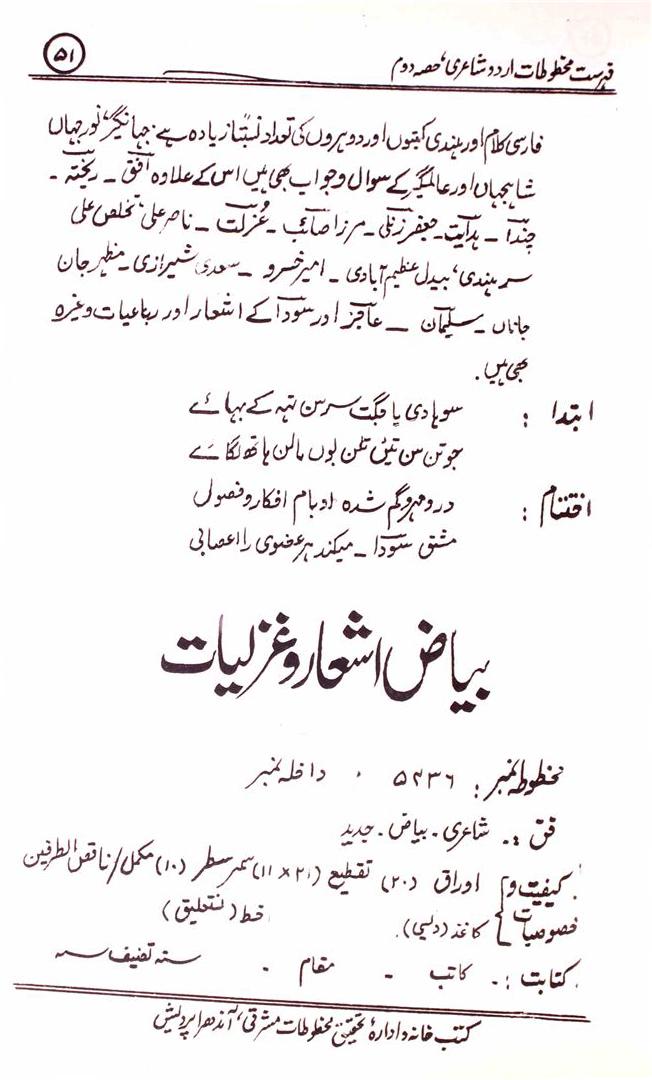 فہرست مخطوطات اردو شاعری، حصہ دوم
۵۱
فارسی کلام اور ہندی کبتوں اور دوہروں کی تعداد نسبتاً زیادہ ہے جہانگیر، نور جہاں
شاہجہاں اور عالمگیر کے سوال وجواب بھی ہیں اس کے علاوہ آفق ۔ ریختہ ۔
چندا ۔ ہدایت ۔ جعفر زٹلی ۔ مرزا صائب ۔ عزلت ۔ ناصر علی، تخلص علی
سرہندی، بیدل عظیم آبادی ۔ امیر خسرو ۔ سعدی شیرازی ۔ مظہر جان
جاناں ۔ سلیمان ۔ عاجز اور سودا کے اشعار اور رباعیات وغیرہ
بھی ہیں ۔
ابتدا : سوہادی پا جگت سرسن تہہ کے بہائے
جوتن سن تیں تلن لوں مالن ہاتھ لگائے
اختتام : درو مہرو گم شدہ اوہام افکار و فصول
مشق سودا ۔ میکند ہر عضوی را اعصابی
بیاض اشعار و غزلیات
مخطوطہ نمبر : ۵۴۳۶ ۰ داخلہ نمبر
فن :۔ شاعری ۔ بیاض ۔ جدید
کیفیت و اوراق (۲۰) تقطیع (۲۱ × ۱۱) سمر سطر (۱۰) مکمل/ناقص الطرفین
خصوصیات کاغذ (دیسی) ۔ خط (نستعلیق)
کتابت :۔ کاتب - مقام - سنہ تصنیف سہ
کتب خانہ و ادارۂ تحقیق مخطوطات مشرقی، آندھرا پردیش